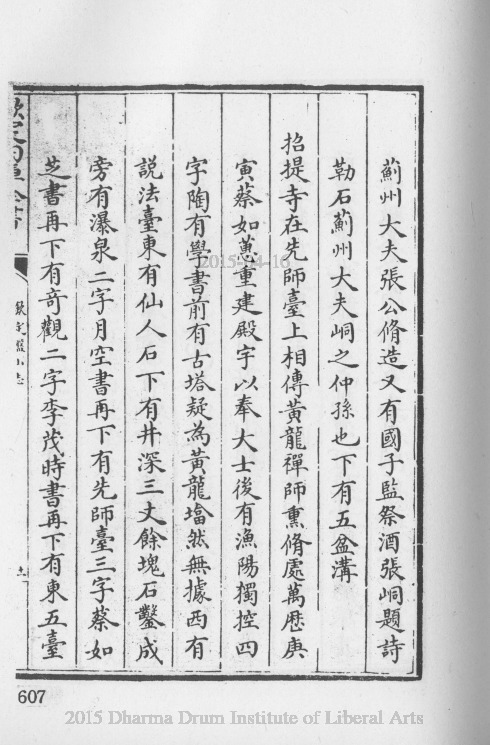 薊州大夫張公脩造又有國子監祭酒張峒題詩
勒石薊州大夫峒之仲孫也下有五盆溝
招提寺在先師臺上相傳黃龍禪師熏脩處萬歷庚
寅蔡如蕙重建殿宇以奉大士後有漁陽獨控四
字陶有學書前有古塔疑為黃龍墖然無據西有
説法臺東有仙人石下有井深三丈餘塊石鑿成
旁有瀑泉二字月空書再下有先師臺三字蔡如
芝書再下有奇觀二字李茂時書再下有東五臺
欽定盤山志
607
2015-04-16
2015 Dharma Drum Institute of Liberal Arts